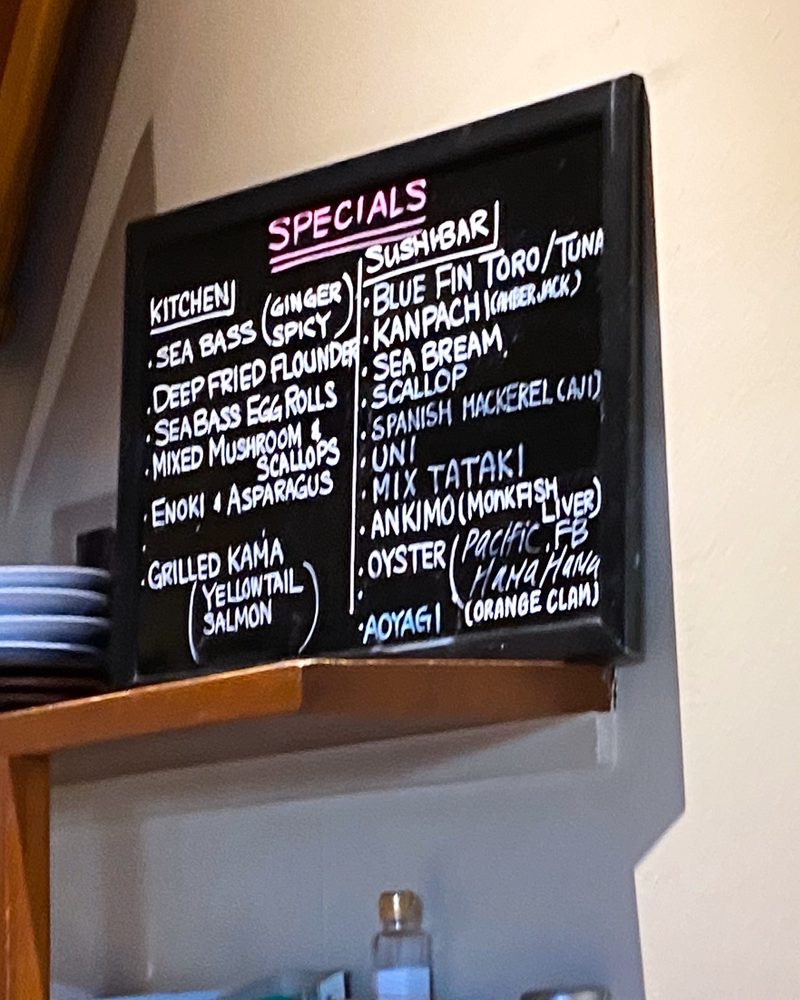 SPECIALS
KITCHEN
· SEA BASS (GINGER
SPICY)
· DEEP FRIED FLOUNDER
· SEABASS EGG ROLLS
· MIXED MUSHROOM &
SCALLOPS
· ENOKI & ASPARAGUS
·
· GRILLED KAMA
(YELLOWTAIL
SALMON)
SUSHI BAR
· BLUE FIN TORO/TUNA
· KANPACHI (AMBER JACK)
· SEA BREAM
· SCALLOP
· SPANISH MACKEREL (AJI)
· UNI
· MIX TATAKI
· ANKIMO (MONKFISH
LIVER)
· OYSTER (Pacific, FB
HaMa HaMa
·
· AOYAGI (ORANGE CLAM)